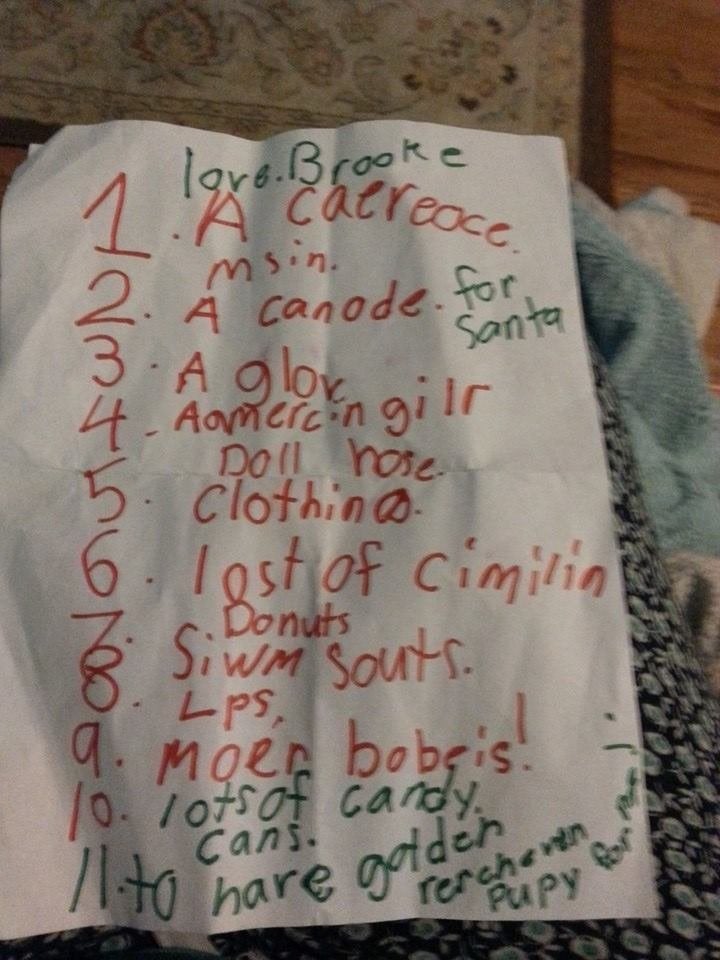 love. Brooke
1. A caereoce.
msin.
2. A canode. for
santa
3. A glov
4. Aamercin gilr
Doll hose.
5. clothing.
6. lost of cimilin
Donuts
7. Siwm souts.
8. Lps,
9. moer bobeis!
10. lots of candy.
cans.
11. to have golden
rercheven
pupy for me!